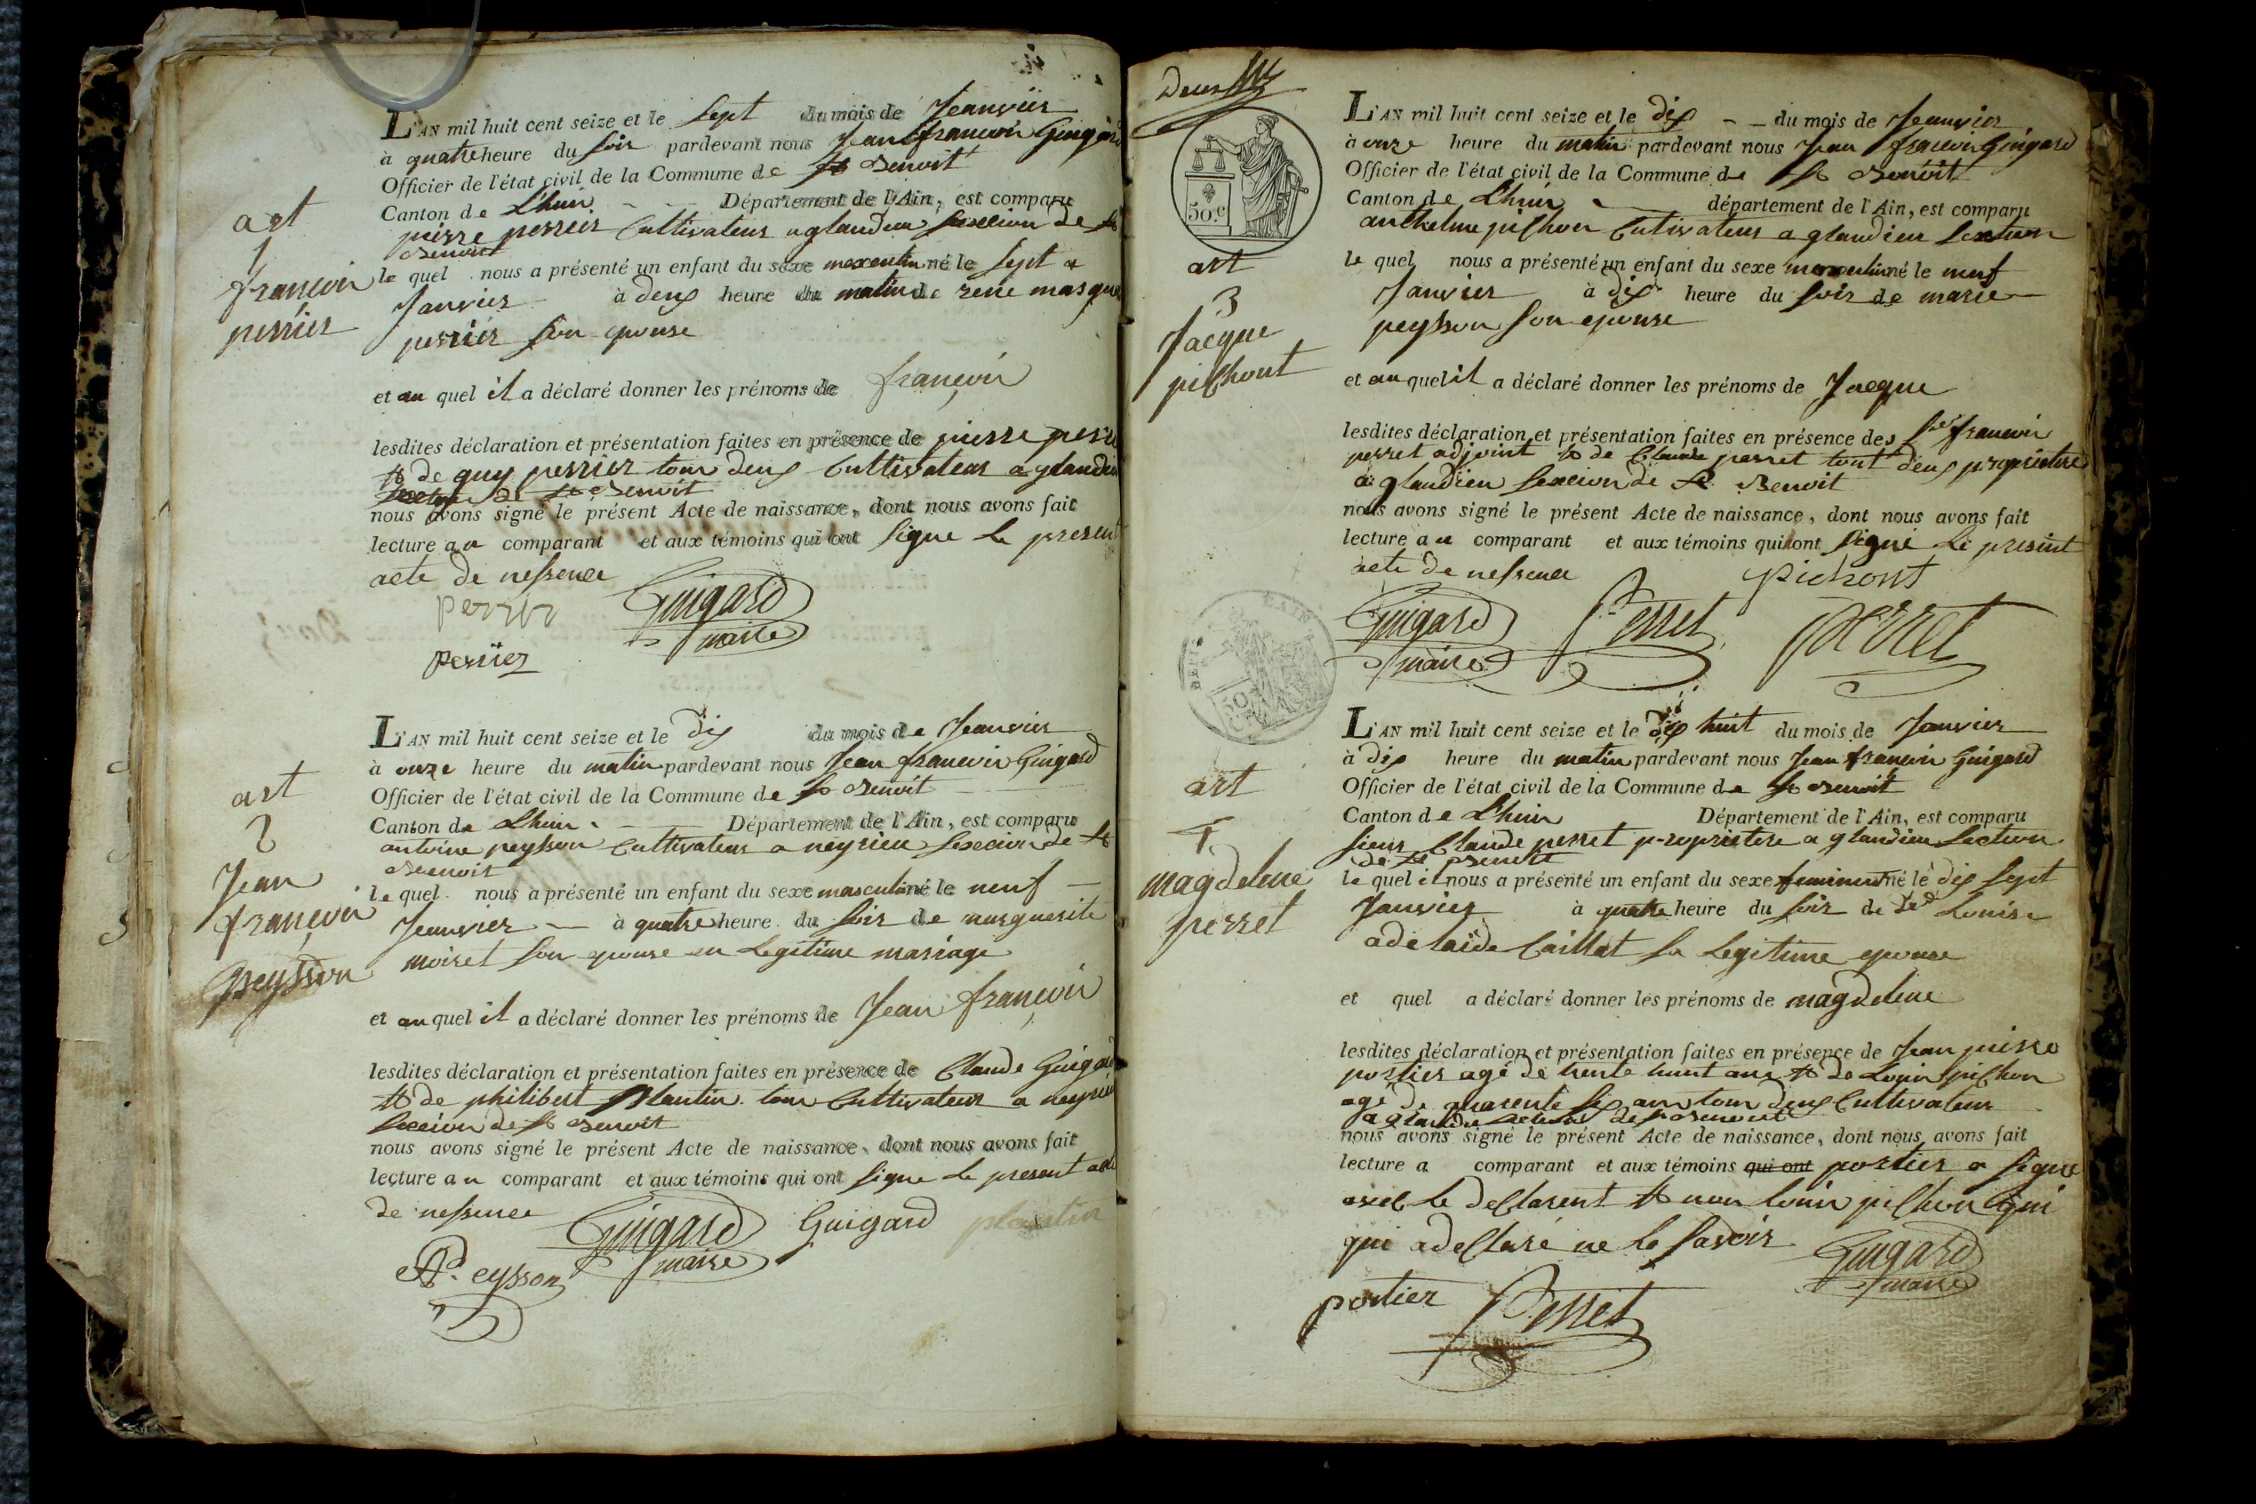 art
1
françois
perrier
L'AN mil huit cent seize et le sept du mois de Jeanvier
à quatre heure du soir pardevant nous Jean françois Guigard
Officier de l'état civil de la Commune de st Benoit
Canton de Lhuis Département de l'Ain, est comparu
pierre perrier Cultivateur a glandieu section de st
Benoit
le quel nous a présenté un enfant du sexe né le sept a
Janvier à deux heure du matin de
perrier son epouse
et au quel il a déclaré donner les prénoms de françois
lesdites déclaration et présentation faites en présence de pierre
& de guy perrier tour deux Cultivateur a glandieu
section de st Benoit
nous avons signé le présent Acte de naissance, dont nous avons fait
lecture au comparant et aux témoins qui ont signe le present
acte de nessence
perrier
Guigard
maire
perrier
art
2
Jean
françois
peysson
L'AN mil huit cent seize et le dix du mois de Jeanvier
à onze heure du matin pardevant nous Jean françois Guigard
Officier de l'état civil de la Commune de st Benoit
Canton de Lhuis Département de l'Ain, est comparu
antoine peysson Cultivateur a neyrieu section de st
Benoit
le quel nous a présenté un enfant du sexe masculin né le neuf
Jeanvier à quatre heure du soir de marguerite
moiret son epouse en Legitime mariage
et au quel il a déclaré donner les prénoms de Jean françois
lesdites déclaration et présentation faites en présence de Claude Guigard
& de philibert plantin tour Cultivateur a neyrieu
section de st Benoit
nous avons signé le présent Acte de naissance, dont nous avons fait
lecture au comparant et aux témoins qui ont signe le present acte
de nessence
Guigard
maire
Guigard
plantin
Peysson
Deux
50.c
art
3
Jacque
pichont
L'AN mil huit cent seize et le dix du mois de Jeanvier
à onze heure du matin pardevant nous Jean françois Guigard
Officier de l'état civil de la Commune de st Benoit
Canton de Lhuis département de l'Ain, est comparu
anthelme pichon Cutivateur a glandieu section
le quel nous a présenté un enfant du sexe né le neuf
Janvier à dix heure du soir de marie
peysson son epouse
et au quel il a déclaré donner les prénoms de Jacque
lesdites déclaration et présentation faites en présence des françois
perret adjoint & de Claude perret tout deux proprietere
a glandieu section de st Benoit
nous avons signé le présent Acte de naissance, dont nous avons fait
lecture au comparant et aux témoins qui ont signé le present
acte de nessence
pichont
Guigard
maire
Perret
perret
art
4
magdelene
perret
L'AN mil huit cent seize et le dix huit du mois de Janvier
à dix heure du matin pardevant nous Jean françois Guigard
Officier de l'état civil de la Commune de st Benoit
Canton de Lhuis Département de l'Ain, est comparu
sieur Claude perret proprietere a glandieu section
de st Benoit
le quel il nous a présenté un enfant du sexe né le dix sept
Janvier à quatre heure du soir de Louise
adelaide Caillat sa Legitime epouse
et quel a déclaré donner les prénoms de magdelene
lesdites déclaration et présentation faites en présence de Jean pierre
portier agé de trente ans & de Louis pichon
age de quarente six ans tour deux Cultivateur
a glandieu section de st Benoit
nous avons signé le présent Acte de naissance, dont nous avons fait
lecture a comparant et aux témoins qui ont portier a signe
avec le declarent & non Louis pichon qui
qui a declaré ne le savoir
Guigard
maire
portier
Perret